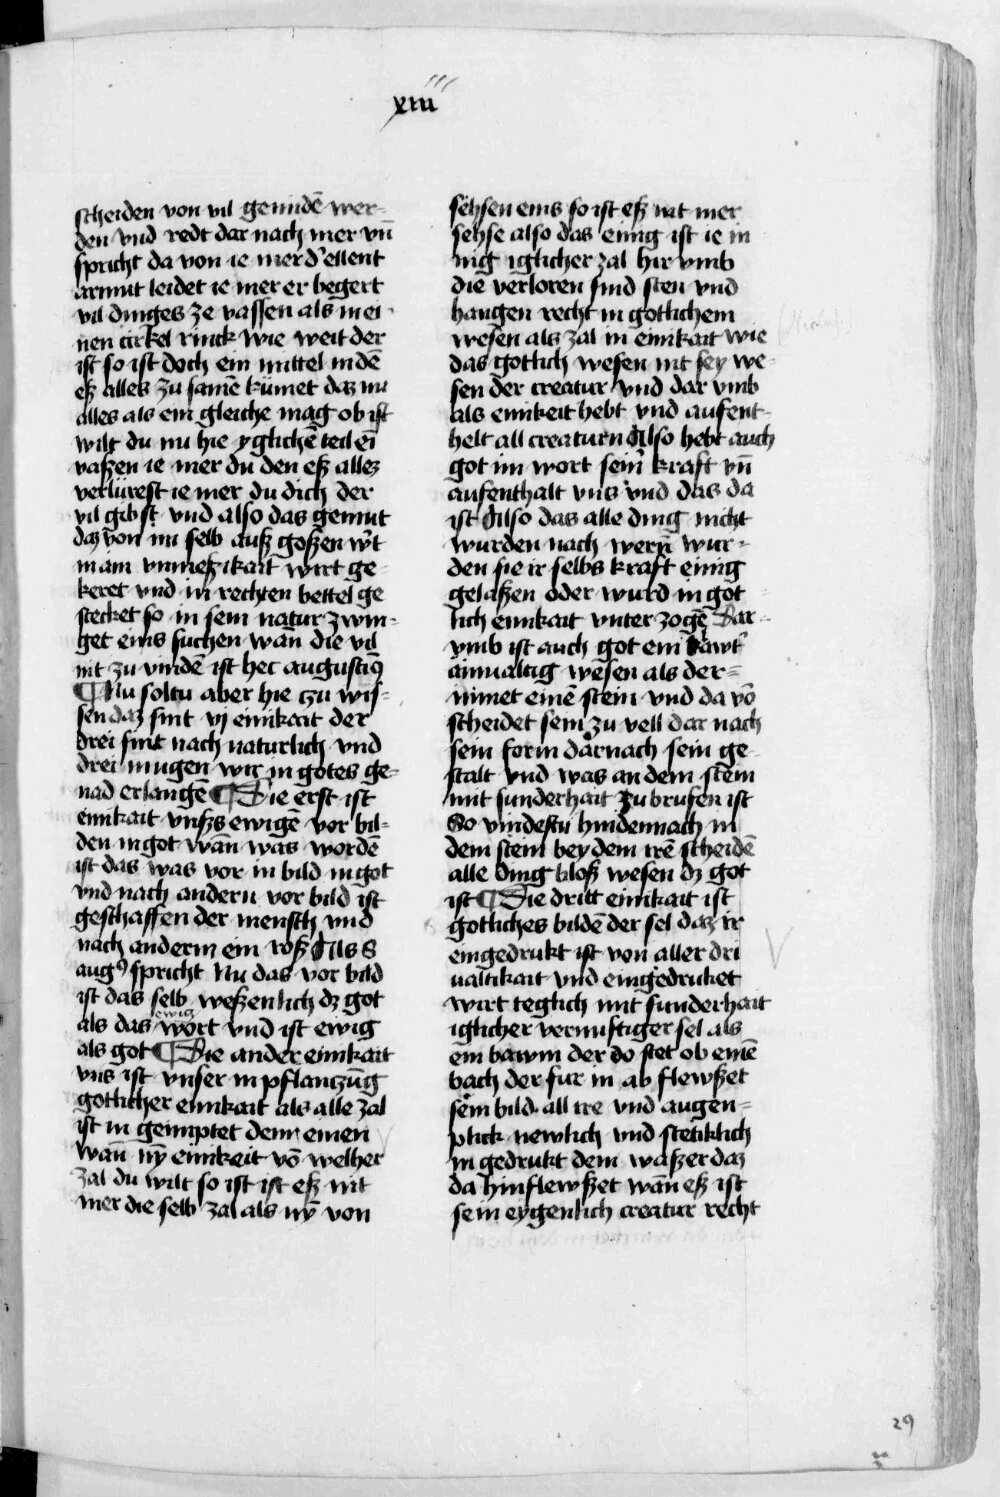 xiiii
scheiden von vil gemudē wer-
den vnd redt dar nach mer vn̄
spricht da von ie mer d' ellent
armut leidet ie mer er begert
vil dinges ze vassen als mei-
nen cirkel rinck wie weit der
ist so ist doch ein mittel in dē
eß alles zu samē kümet daz nu
alles als ein gleiche mag ob ist
wilt du nu hie yglichē teil ei
vaßen ie mer du den eß allez
verlürest ie mer du dich der
vil gibst vnd also das gemut
daz von im selb auß goßen wt
in ain vnmeßikait wirt ge-
keret vnd in rechten bettel ge
stecket so in sein natur zwin-
get eins suchen wan die vil
nit zu vindē ist hec augustiꝰ
¶ Nu soltu aber hie czu wis-
sen daz sint vj einikait der
drei sint nach naturlich vnd
drei mugen wir in gotes ge-
nad erlangē ¶ Die erst ist
einikait vnsżs ewigē vor bil-
den in got wān was wordē
ist das was vor in bild in got
vnd nach andern vor bild ist
geschaffen der mensch vnd
nach anderm ein roß Als S
augꝰ spricht Nu das vor bild
ist das selb weßenlich dz got
als das ewig wort vnd ist ewig
als got ¶ Die ander einikait
vns ist vnser in pflanczūg
gotlicher einikait als alle zal
ist in geimptet dem einen
wan ny̅ einikeit vō welher
zal du wilt so ist ist eß nit
mer die selb zal als ny̅ von
sehsen eins so ist eß nit mer
sehse also das einig ist ie in
nig iglicher zal hir vmb
die verloren sind sten vnd
hangen recht in gotlichem
wesen als zal in einikait wie
das gotlich wesen nit sey we-
sen der creatur vnd dar vmb
als einikeit hebt vnd aufent-
helt all creaturn Also hebt auch
got im wort sein' kraft vn̄
aufenthalt vns vnd das da
ist Also das alle ding nicht
wurden nach wern wur-
den sie ir selbs kraft einig
gelaßen oder wurd in got-
lich einikait vnter zogē Dar-
vmb ist auch got ein lawt'
ainualtig wesen als der-
nimet einē stein vnd da vō
scheidet sein zu vell dar nach
sein form darnach sein ge-
stalt vnd was an dem stein
mit sunderhait zu brufen ist
So vindestu hindennach in
dem stein bey dem irē scheidē
alle ding bloß wesen dz got
ist ¶ Die dritt einikait ist
gotliches bildē der sel daz ir
eingedrukt ist von aller dri
ualtikait vnd eingedruket
wirt teglich mit sunderhait
iglicher vernuftiger sel als
ein bawm der do stet ob einē
bach der fur in ab flewßet
sein bild all ire vnd augen-
plick newlich vnd stetiklich
in gedrukt dem waßer daz
da hinflewßet wān eß ist
sein eygenlich creatur recht
29